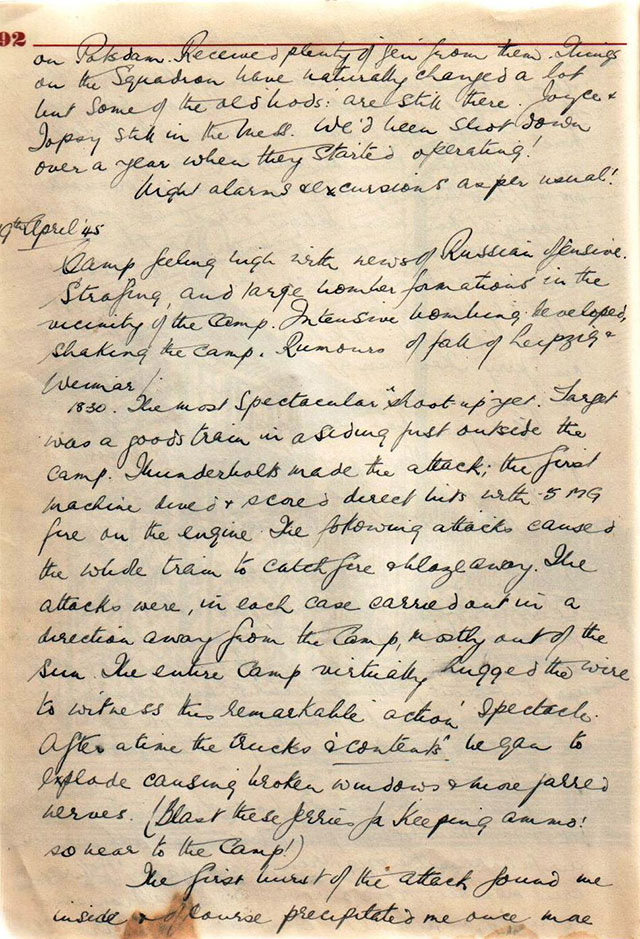 92
on Potsdam. Received plenty of 'gen' from them. Things
on the Squadron have naturally changed a lot
but some of the old bods: are still there. Joyce &
Topsy still in the Mess. We'd been shot down
over a year when they started operating!
Night alarms & excursions as per usual!
19th April '45
Camp feeling high with news of Russian offensive.
Strafing, and large bomber formations in the
vicinity of the camp. Intensive bombing developed,
shaking the camp. Rumours of fall of Leipzig &
Weimar!
1830. The most spectacular "shoot-up" yet. Target
was a goods train in a siding just outside the
camp. Thunderbolts made the attack; the first
machine dived & scored direct hits with .5 MG
fire on the engine. The following attacks caused
the whole train to catch fire & blaze away. The
attacks were, in each case carried out in a
direction away from the camp, mostly out of the
sun. The entire camp virtually hugged the wire
to witness this remarkable 'action' spectacle.
After a time the trucks "& contents" began to
explode causing broken windows & more jarred
nerves. (Blast these Jerries for keeping ammo!
so near to the camp!)
The first burst of the attack found me
inside & of course precipitated me once more